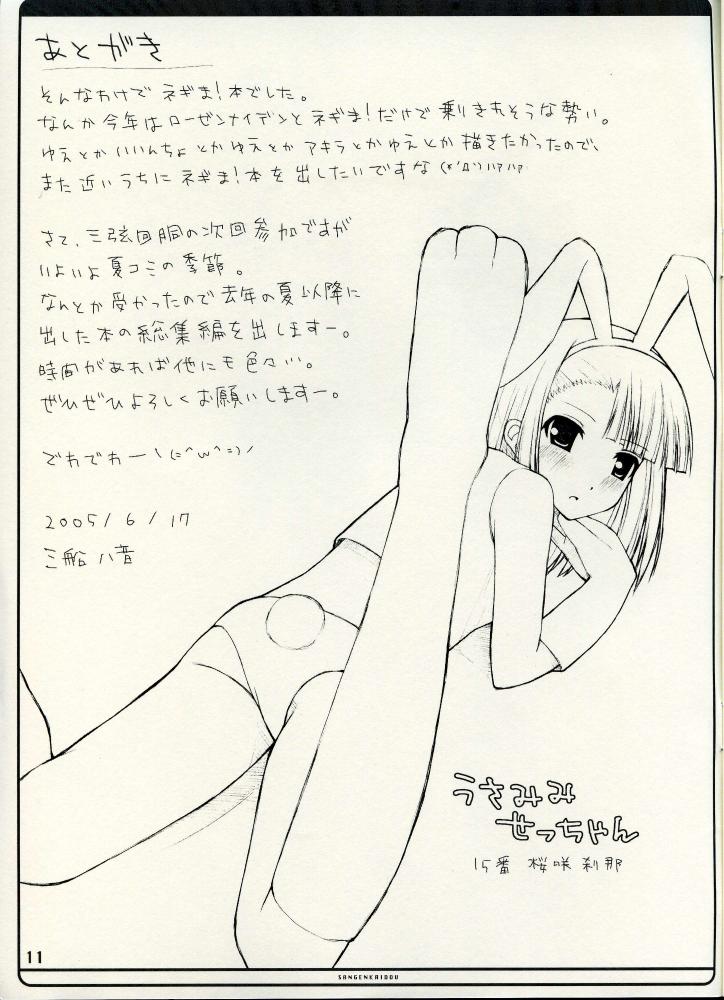 あとがき
そんなわけで ネギま！本でした。
なんか今年はローゼンメイデンとネギま！だけで 乗りきれそうな勢い。
ゆえとか いいんちょ とかゆえとか アキラとかゆえとか 描きたかったので、
また近いうちに ネギま！本を出したいですな (*´Д`)ハァハァ
さて、三弦回胴の次回参加ですが
いよいよ夏コミの季節。
なんとか受かったので去年の夏以降に
出した本の総集編を出しますー。
時間があれば他にも色々…。
ぜひぜひよろしくお願いしますー。
でわでわーヽ(=^ω^=)ノ
2005/6/17
三船八音
うさみみ
せっちゃん
15番 桜咲刹那
11
SANGENKAIDOU